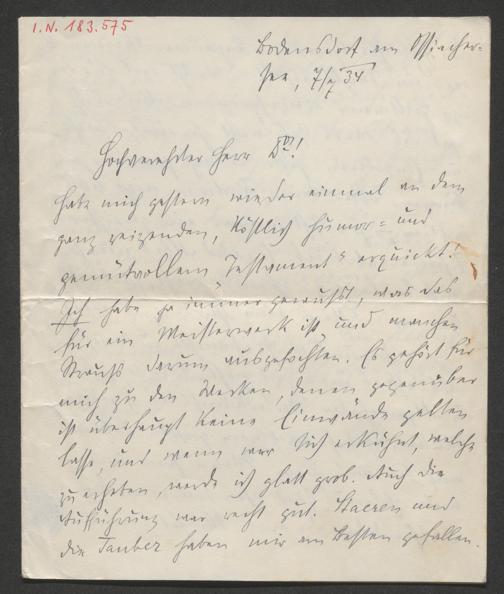 I.N. 183.575
Bodensdorf am Ossiacher-
see, 7/V 34
Hochverehrter Herr Dor!
Habe mich gestern wieder einmal an dem
ganz reizenden, köstlich humor= und
gemütvollem Testament" erquickt!
Ich habe ja immer gewusst, was das
für ein Meisterwerk ist und manchen
Strauß darum ausgefochten. Es gehört für
mich zu den Werken, denen gegenüber
ich überhaupt keine Einwände gelten
lasse, und wenn wer sich erkühnt, welche
zu erheben, werde ich glatt grob. Auch die
Aufführung war recht gut. und
die Tauber haben mir am besten gefallen.